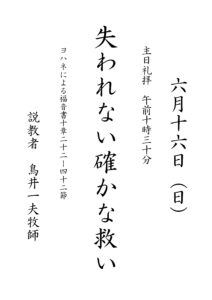 六月十六日（日）
主日礼拝　午前十時三十分
失われない確かな救い
ヨハネによる福音書十章二十二ー四十二節
説教者　鳥井一夫牧師